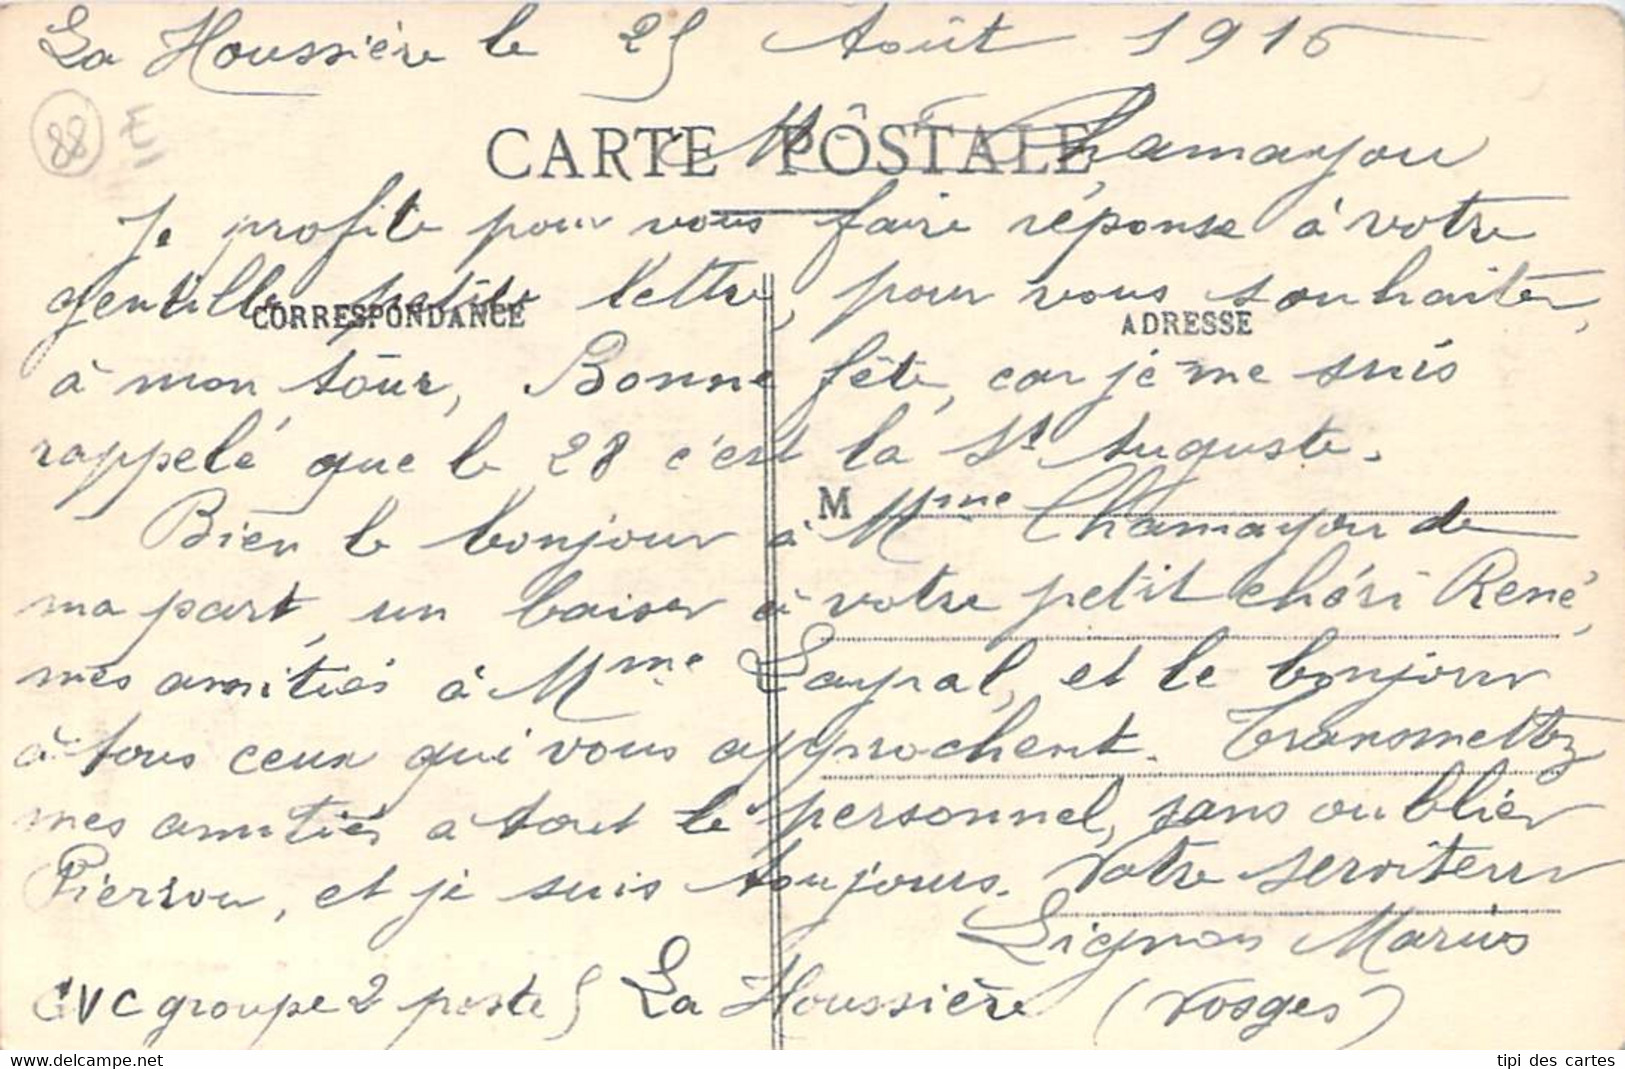 La Houssière le 25 Août 1915
88 E
CARTE POSTALE
M. Chamayou
Je profite pour vous faire réponse à votre
gentille petite lettre, pour vous souhaiter,
CORRESPONDANCE
ADRESSE
à mon tour, Bonne fête, car je me suis
rappelé que le 28 c'est la St Auguste.
M
Bien le bonjour à Mme Chamayou de
ma part, un baiser à votre petit chéri René,
mes amitiés à Mme Layral, et le bonjour
à tous ceux qui vous approchent. Transmettez
mes amitiés à tout le personnel, sans oublier
Pierrou, et je suis toujours. Votre serviteur
Lignon Marius
GVC groupe 2 poste 5 La Houssière (Vosges)
tipi des cartes